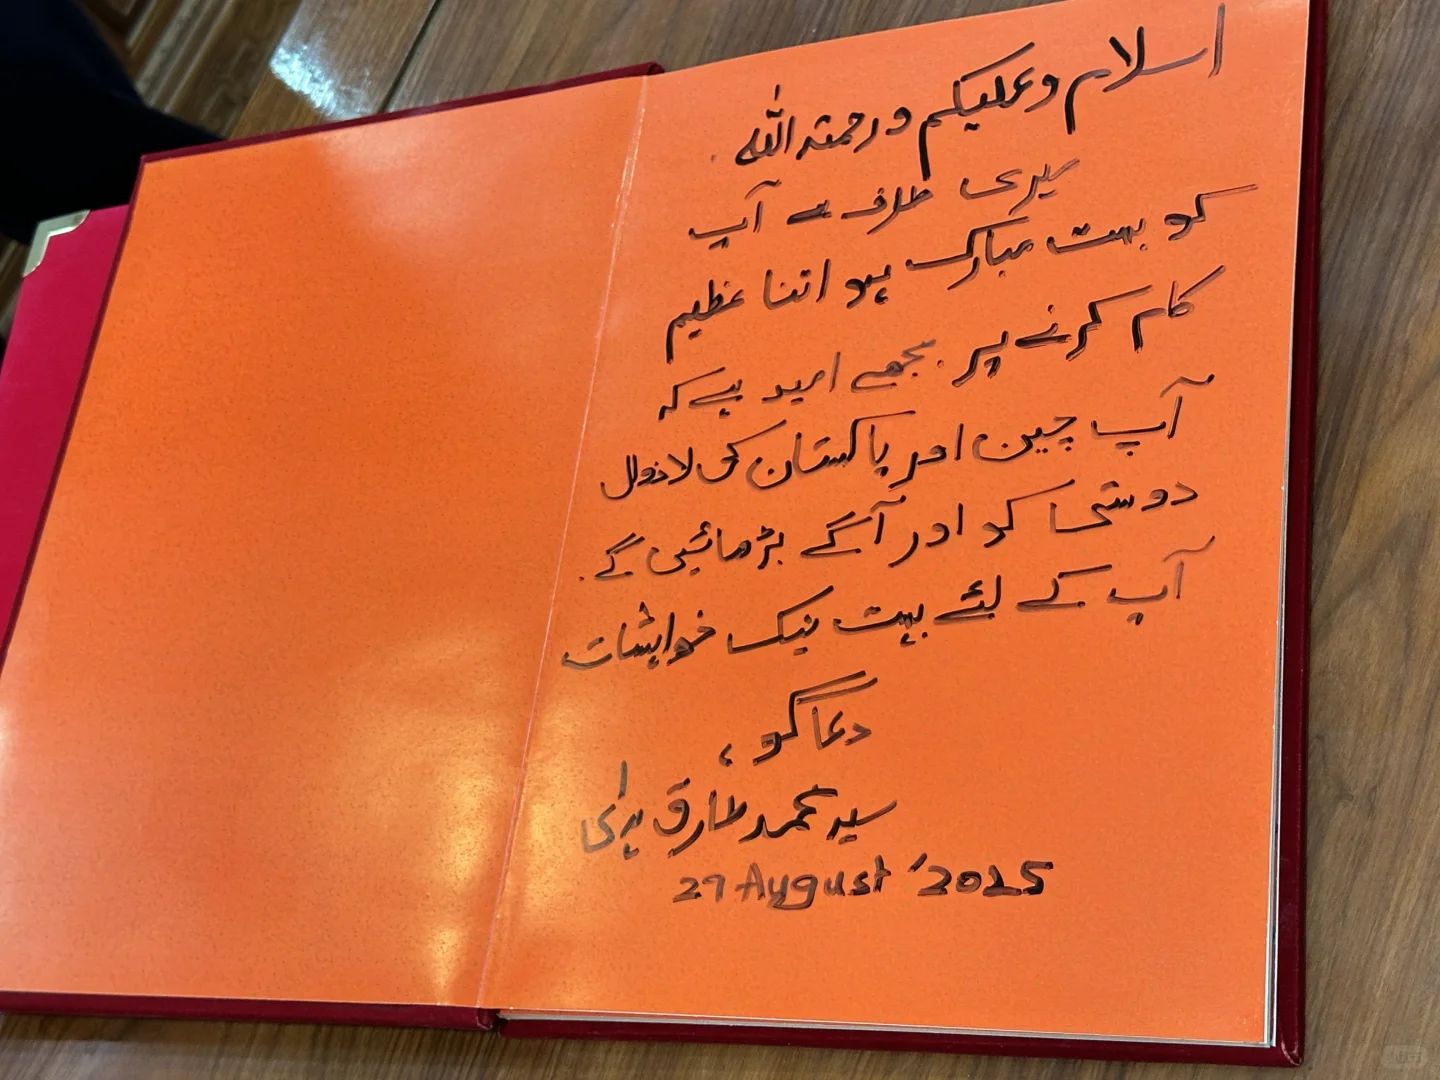 اسلام وعلیکم ورحمتہ اللہ
میری طرف سے آپ
کو بہت مبارک ہو اتنا عظیم
کام کرنے پر۔ مجھے امید ہے کہ
آپ چین اور پاکستان کی لازوال
دوستی کو اور آگے بڑھائیں گے۔
آپ کے لئے بہت نیک خواہشات
دعاگو،
سید محمد طارق
29 August '2025